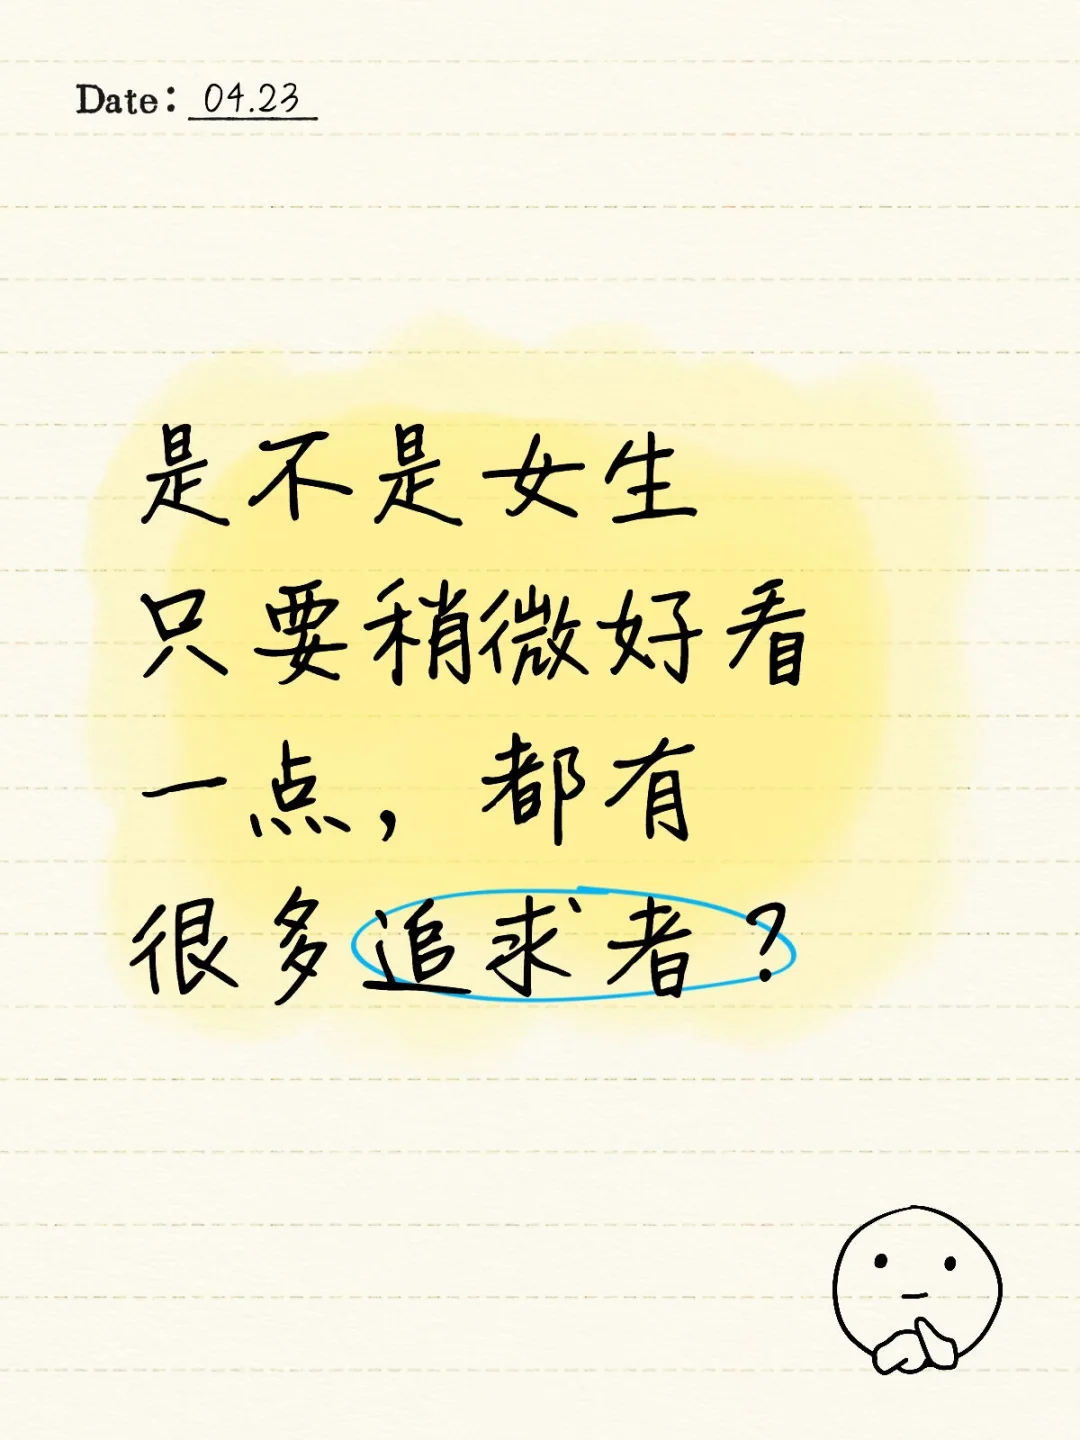 Date: 04.23
是不是女生
只要稍微好看
一点，都有
很多追求者？